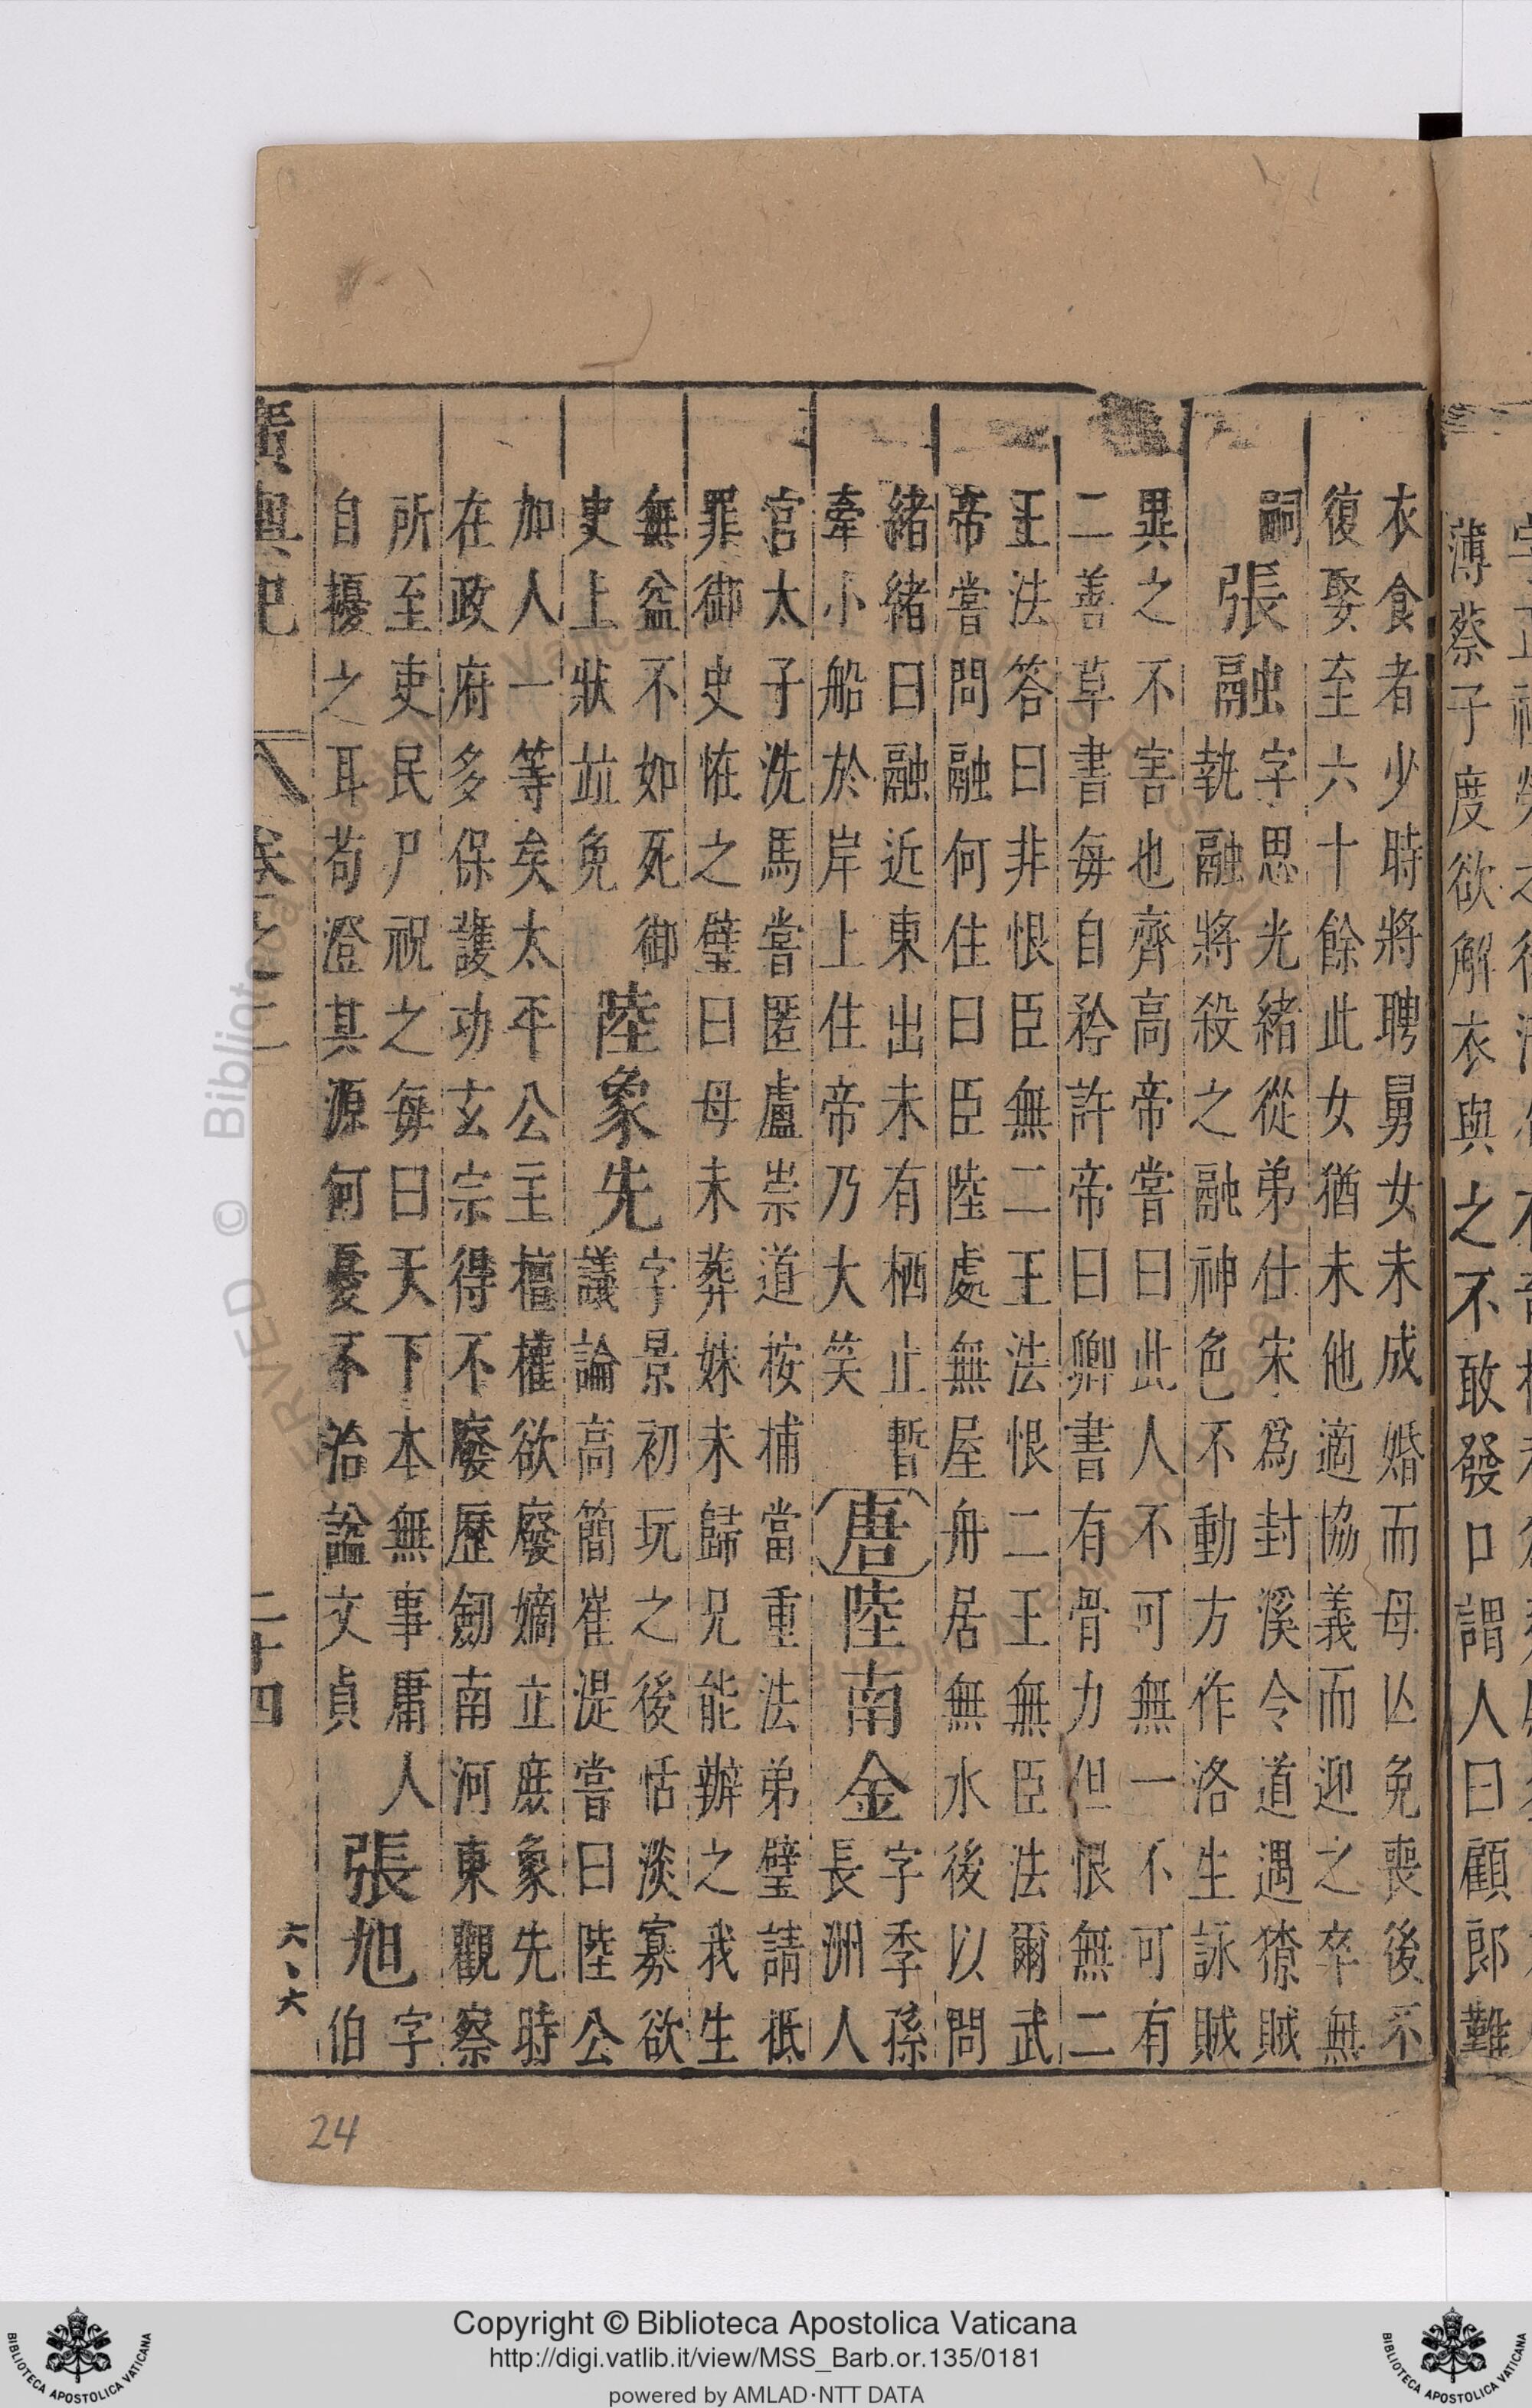 薄蔡子度欲解衣與之不敢發口謂人曰顧郎難
衣食者少時將聘舅女未成婚而母亾免喪後不
復娶至六十餘此女猶未他適協義而迎之卒無
嗣
張融
字思光緒從弟仕宋爲封溪令道遇獠賊
執融將殺之融神色不動方作洛生詠賊
異之不害也齊高帝嘗曰此人不可無一不可有
二善草書每自矜許帝曰卿書有骨力但恨無二
王法答曰非恨臣無二王法恨二王無臣法爾武
帝嘗問融何住曰臣陸處無屋舟居無水後以問
緒緒曰融近東出未有栖止暫
牽小船於岸上住帝乃大笑
唐
陸南金
字季孫
長洲人
官太子洗馬嘗匿盧崇道按捕當重法弟璧請抵
罪御史怪之璧曰母未葬妹未歸兄能辦之我生
無益不如死御
史上狀竝免
陸象先
字景初玩之後恬淡寡欲
議論高簡崔湜嘗曰陸公
加人一等矣太平公主擅權欲廢嫡立庶象先時
在政府多保護功玄宗得不廢歷劒南河東觀察
所至吏民尸祝之每曰天下本無事庸人
自擾之耳苟澄其源何憂不治諡文貞
張旭
字
伯
廣輿記 卷之二 二十四
六、六
24
RESERVED © Biblioteca Apostolica Vaticana
Copyright © Biblioteca Apostolica Vaticana
http://digi.vatlib.it/view/MSS_Barb.or.135/0181
powered by AMLAD·NTT DATA
BIBLIOTECA APOSTOLICA VATICANA
BIBLIOTECA APOSTOLICA VATICANA